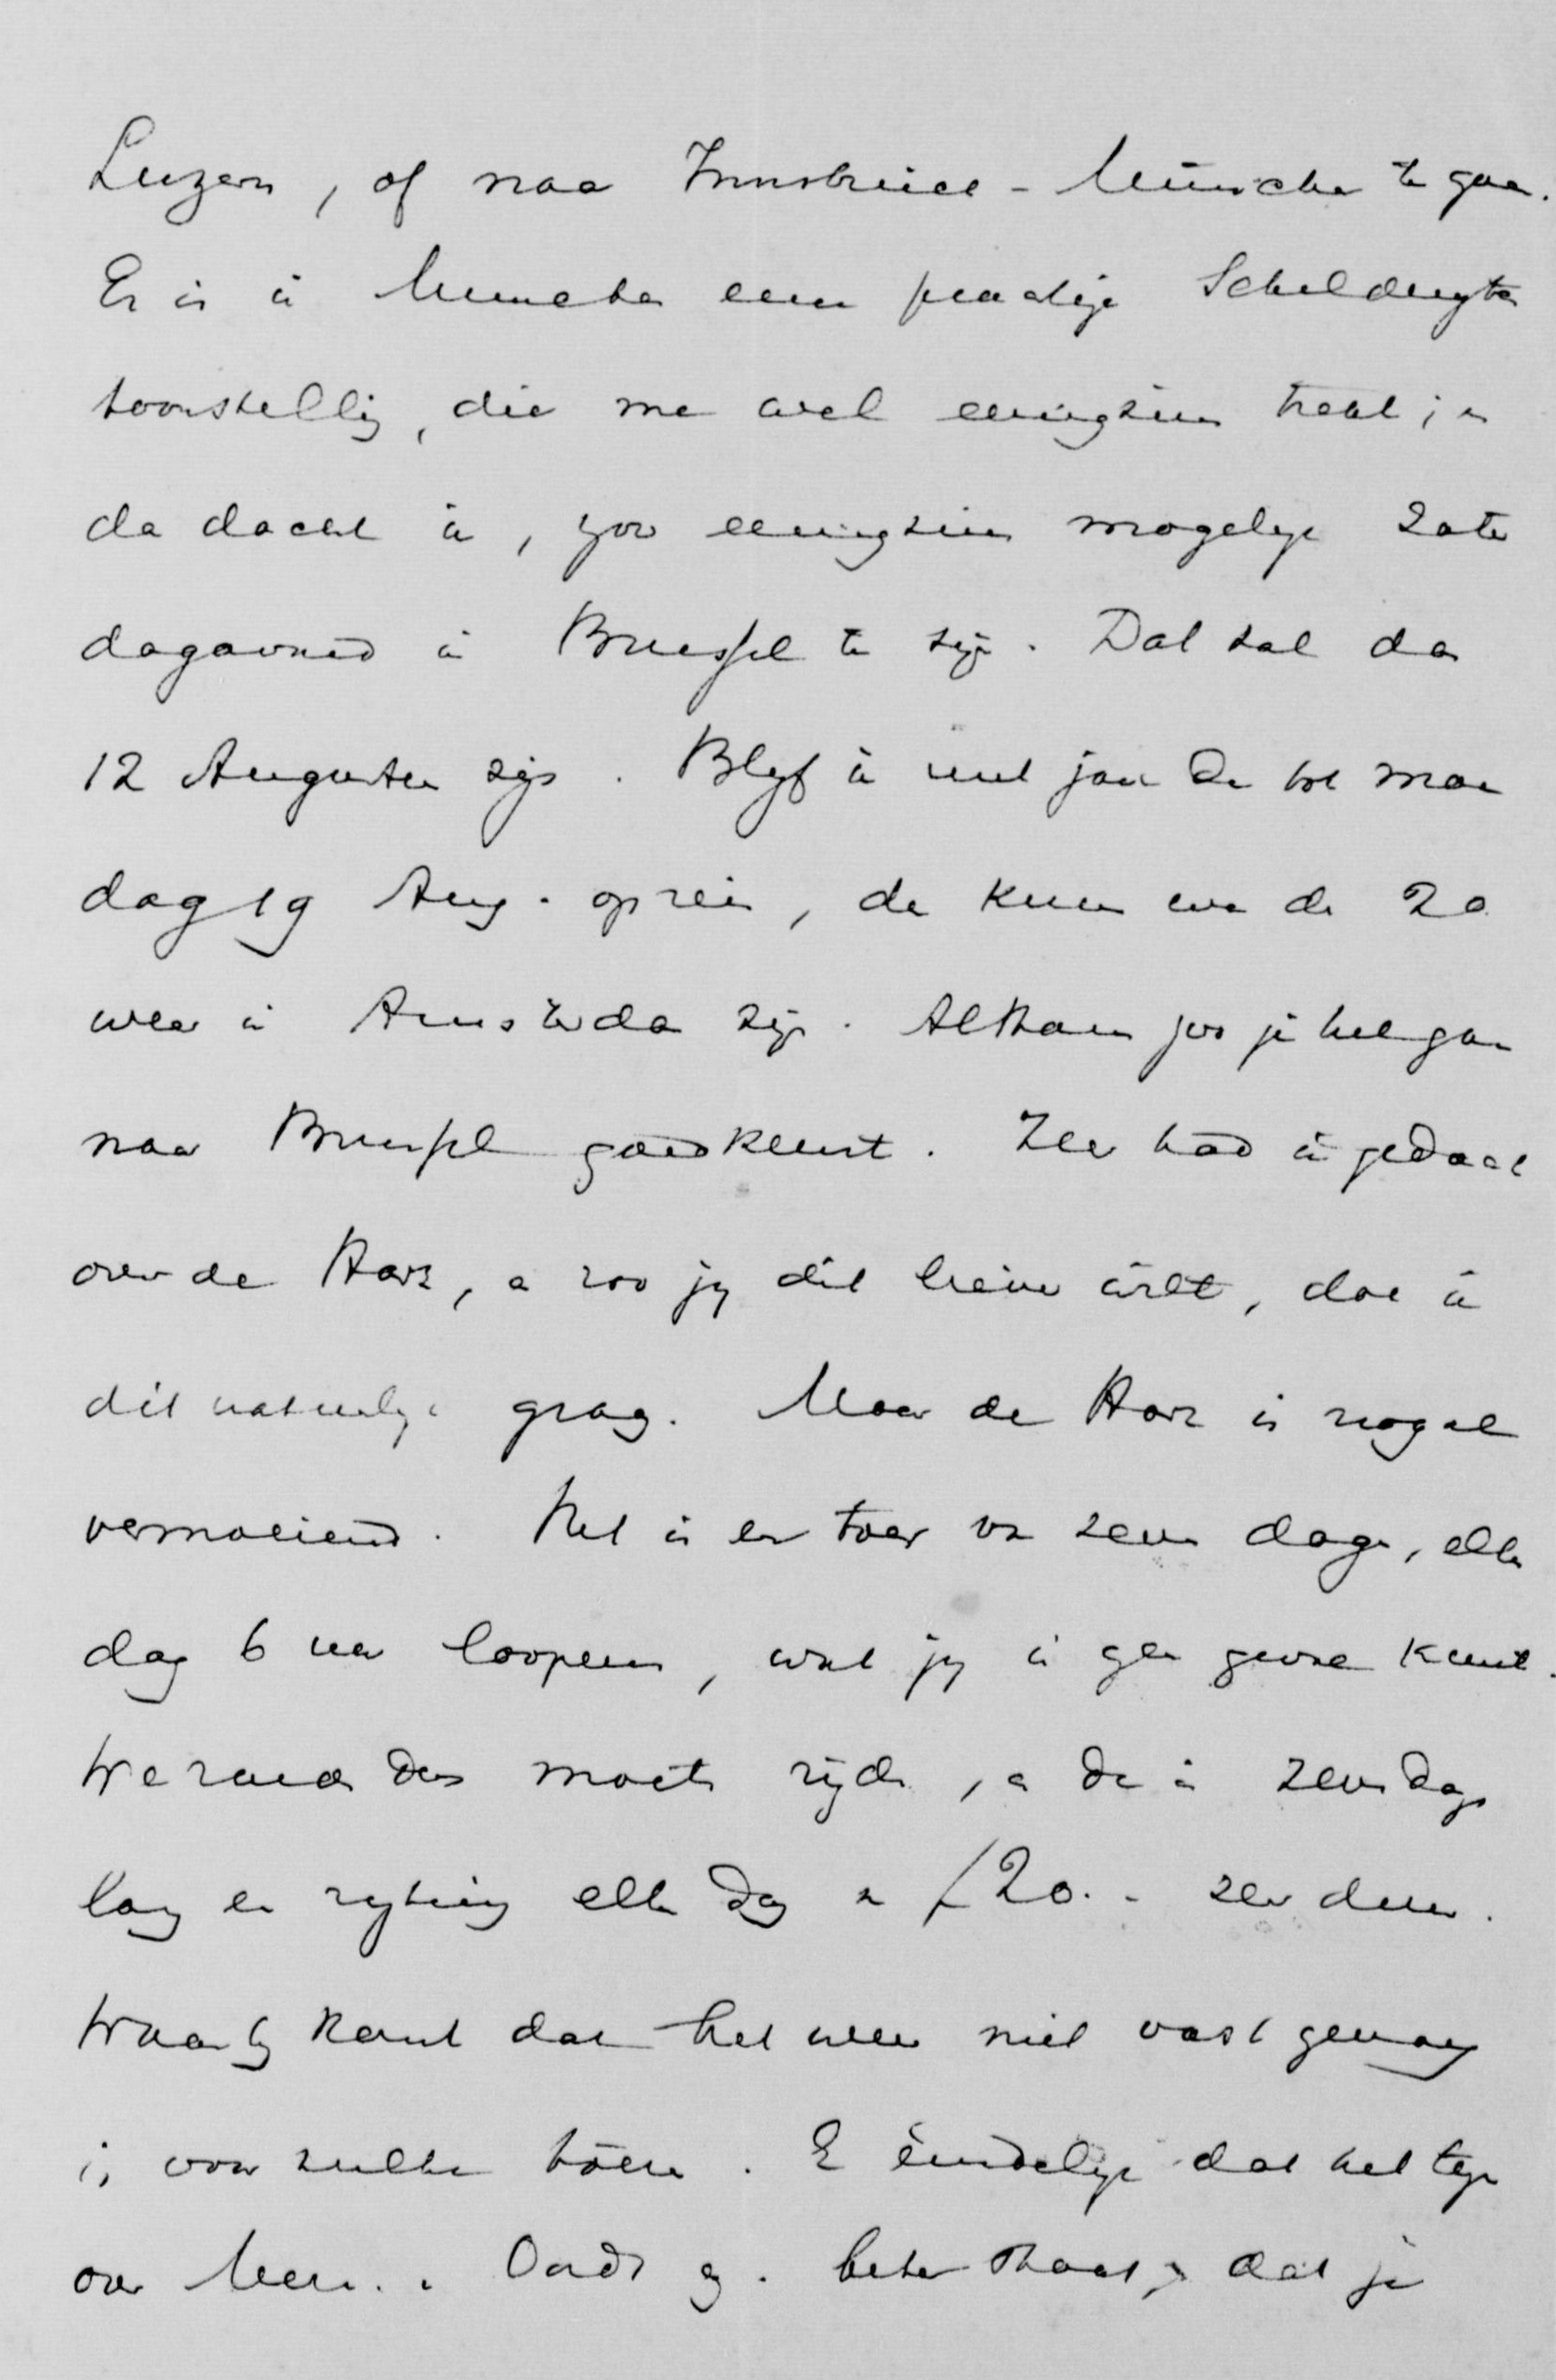 Luzern, of naar Innsbruck - München te gaan.
Er is in Munchen een prachtige Schilderyten
toonstelling, die me wel eenigszins trekt; en
dan dacht ik, zoo eenigszins mogelyk Zater
dagavond in Brussel te zijn. Dat zal dan
12 Augustus zijn. Blyf ik met jou dan tot maan
dag 19 Aug. op reis, dan kunnen we den 20
weer in Amsterdam zijn. Althans zoo je het gaan
naar Brussel goedkeurt. Zeer had ik gedacht
over de Harz, en zoo jy dit liever wilt, doe ik
dit natuurlyk graag. Maar de Harz is nogal
vermoeiend. Het is een toer van zeven dagen, elken
dag 6 uur loopen, wat jy in geen geval kunt.
We zouden dus moeten rijden, en dan is zeven dagen
lang een rijtuig elken dag a f 20.- zeer duur.
Waarby komt dat het weer niet vast genoeg
is voor zulke toeren. En eindelyk dat het tegen
over Mevr. Ouds beter staat, dat je